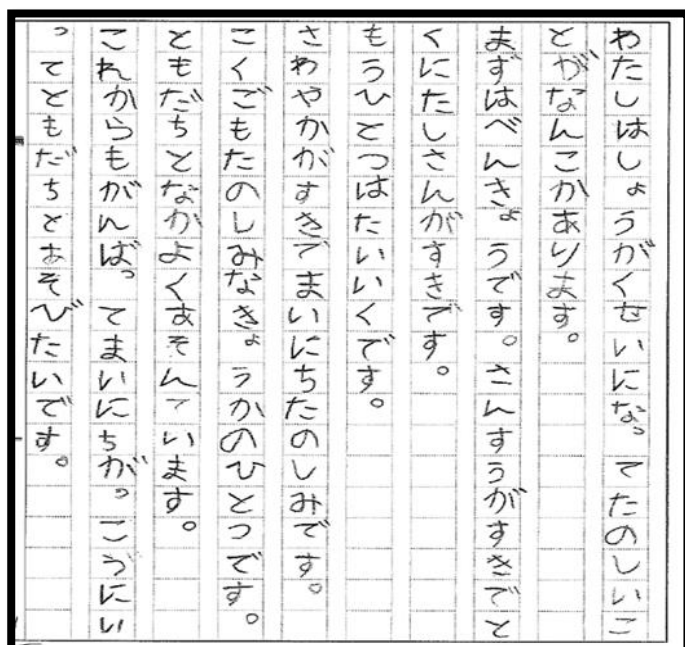 わたしはしょうがくせいになってたのしいこ
とがなんこかあります。
まずはべんきょうです。さんすうがすきでと
くにたしさんがすきです。
もうひとつはたいいくです。
さわやかがすきでまいにちたのしみです。
こくごもたのしみなきょうかのひとつです。
ともだちとなかよくあそんでいます。
これからもがんばってまいにちがっこうにい
ってともだちとあそびたいです。